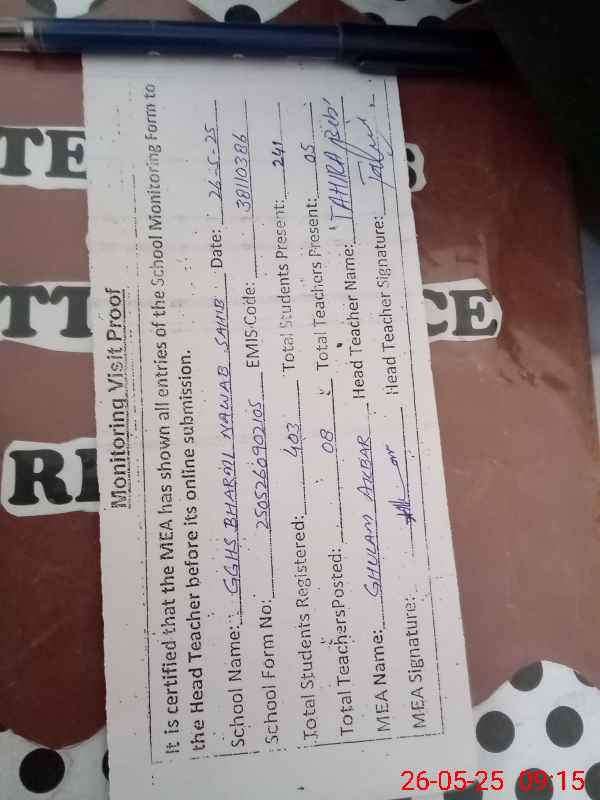 Monitoring Visit Proof
It is certified that the MEA has shown all entries of the School Monitoring Form to
the Head Teacher before its online submission.
School Name: GGHS BHAROLI NAWAB SAHIB Date: 26-5-25
School Form No: 2505260902105 EMIS Code: 38110386
Total Students Registered: 403 Total Students Present: 241
Total TeachersPosted: 08 Total Teachers Present: 05
MEA Name: GHULAM AKBAR Head Teacher Name: TAHIRA Bibi
MEA Signature: Head Teacher Signature:
TE
TT CE
RE
26-05-25 09:15